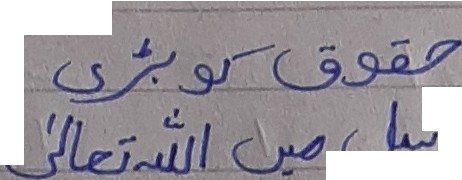 حقوق کو بڑی
میں اللہ تعالیٰ